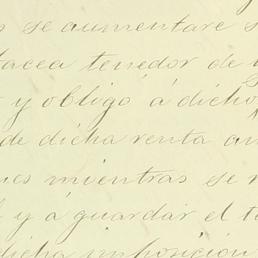 se aumentare
tenedor de
y obligo á dicho
de dicha renta
mientras se
y á guardar el
dicha imposición